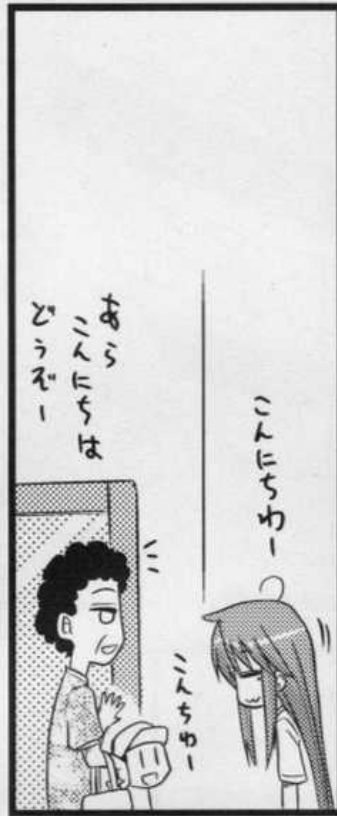 こんにちわー
あら
こんにちは
どうぞー
こんちわー